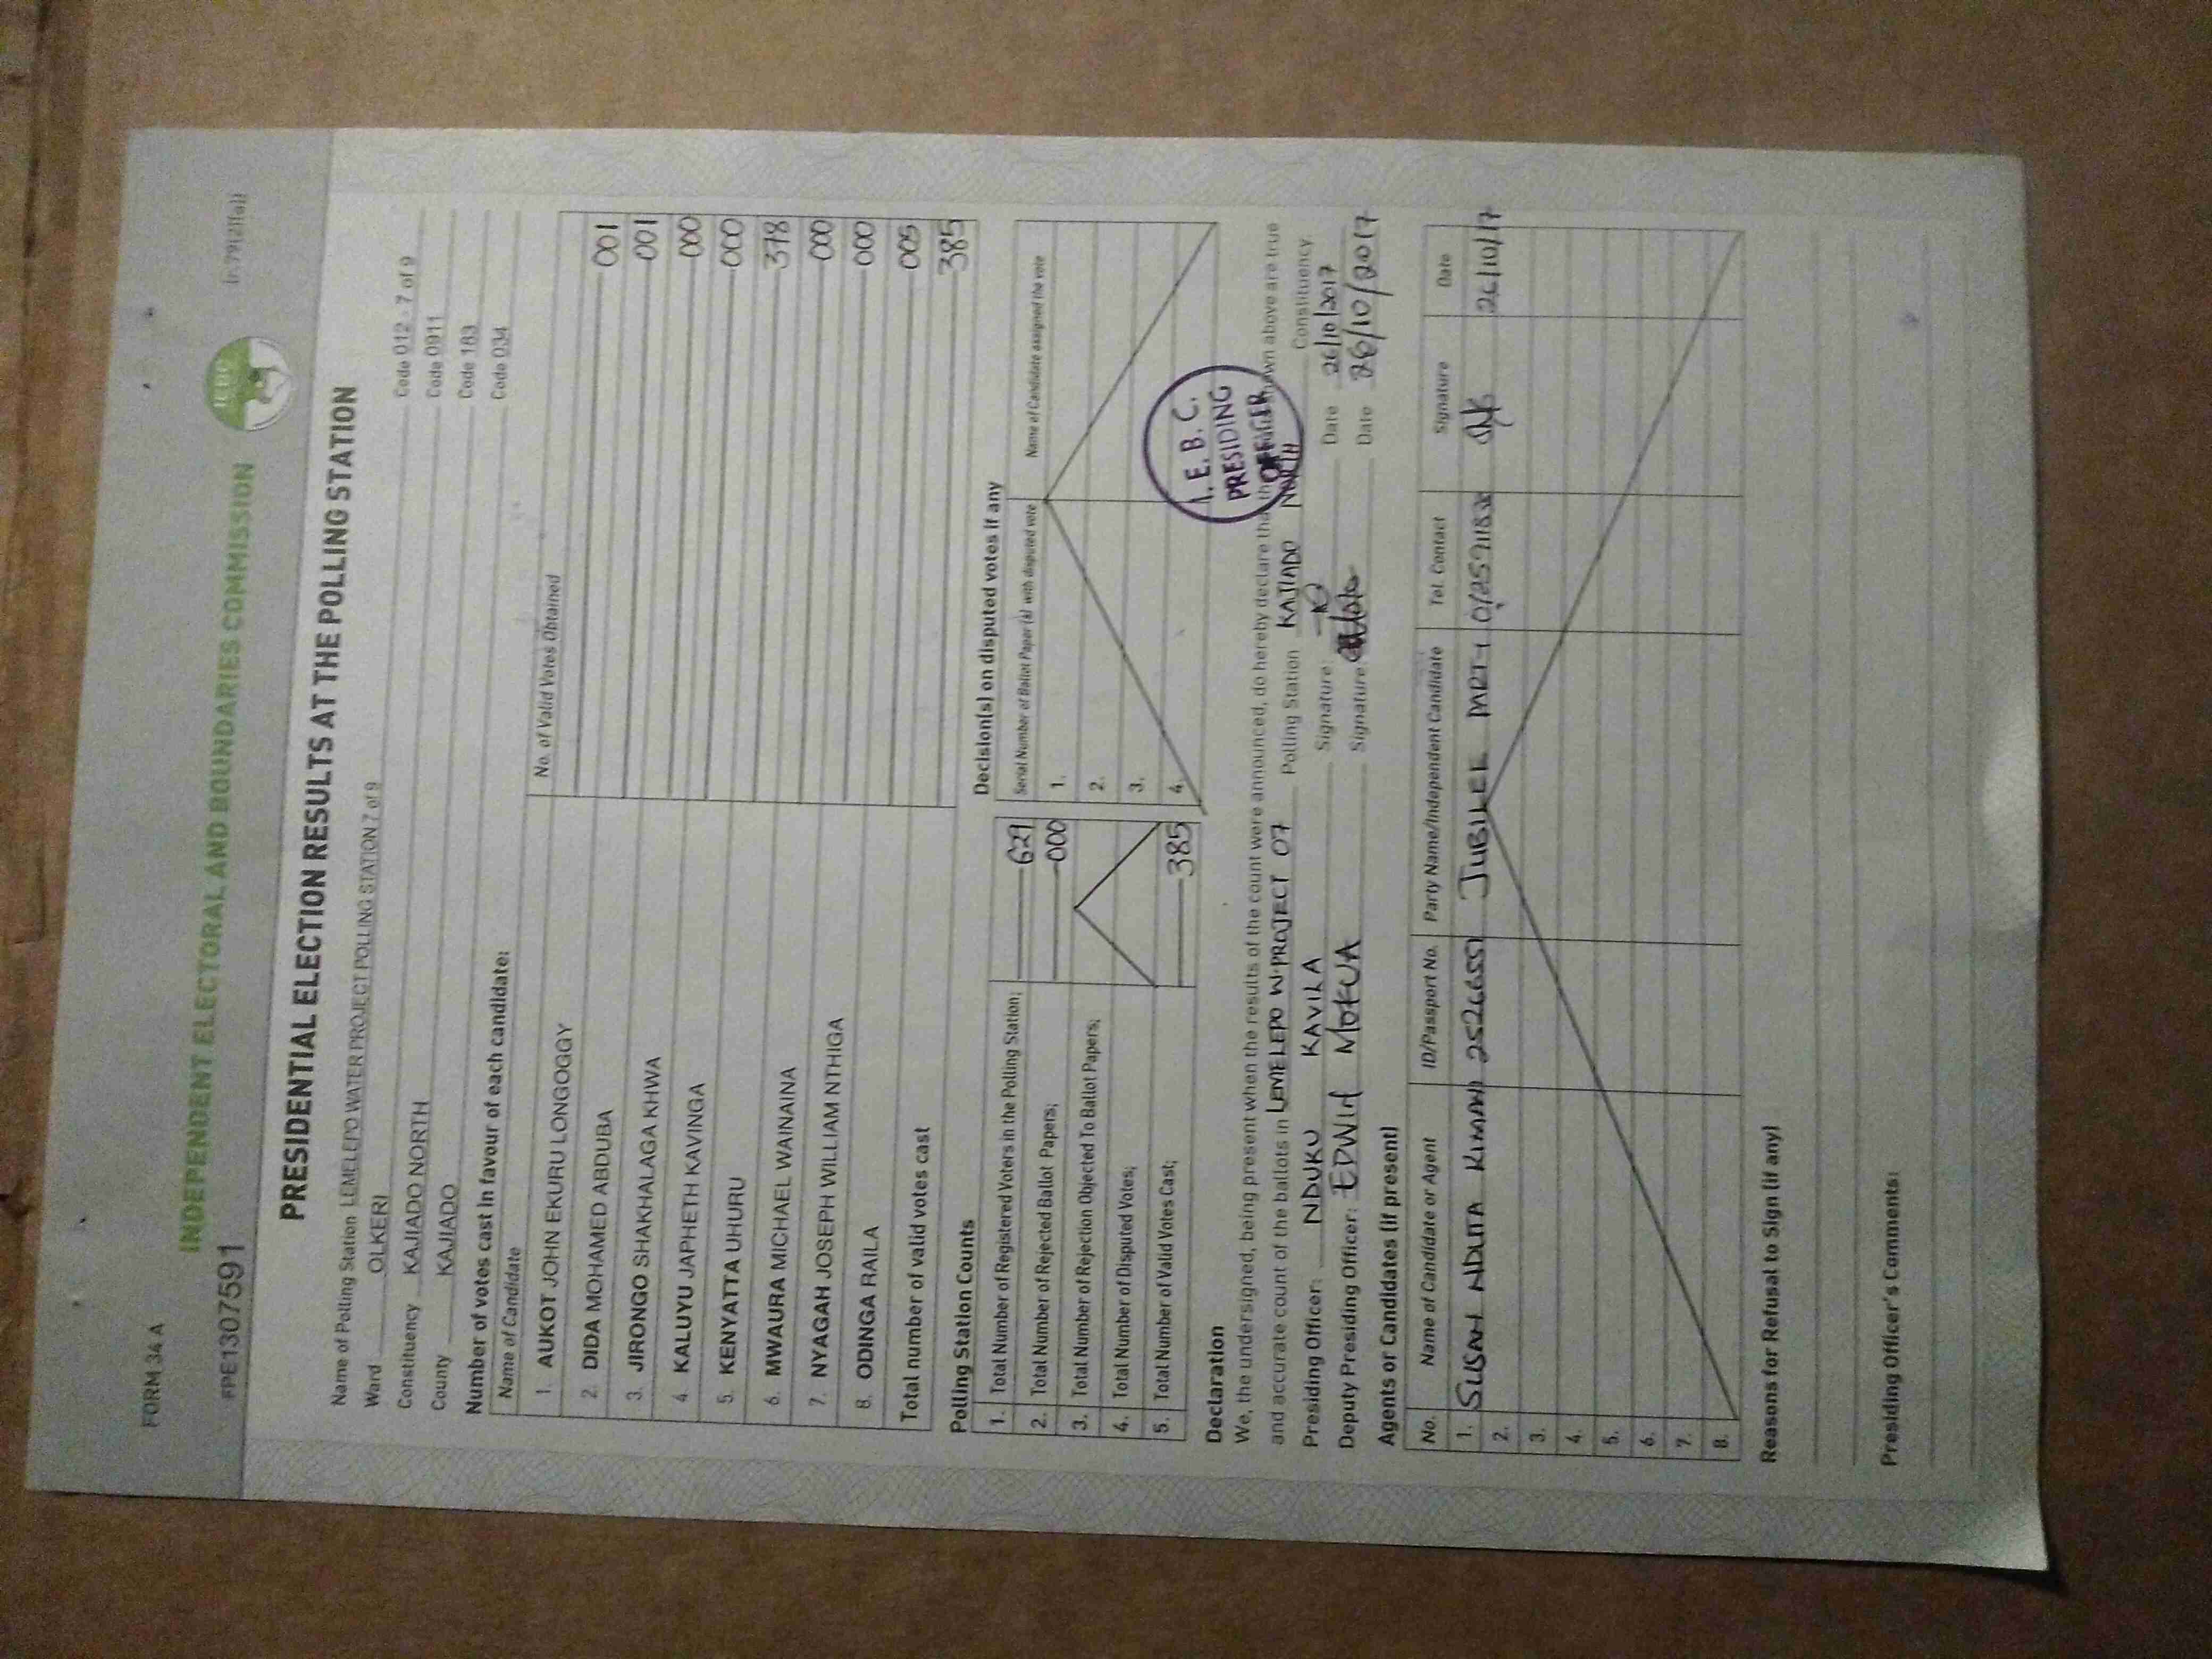 FORM 34 A
(r.79(2)(a))
INDEPENDENT ELECTORAL AND BOUNDARIES COMMISSION
IEBC
FPE1307591
PRESIDENTIAL ELECTION RESULTS AT THE POLLING STATION
Name of Polling Station LEMELEPO WATER PROJECT POLLING STATION 7 of 9 Code 012 - 7 of 9
Ward OLKERI Code 0911
Constituency KAJIADO NORTH Code 183
County KAJIADO Code 034
Number of votes cast in favour of each candidate:
Name of Candidate No. of Valid Votes Obtained
1. AUKOT JOHN EKURU LONGOGGY 001
2. DIDA MOHAMED ABDUBA 001
3. JIRONGO SHAKHALAGA KHWA 000
4 KALUYU JAPHETH KAVINGA 000
5 KENYATTA UHURU 378
6. MWAURA MICHAEL WAINAINA 000
7. NYAGAH JOSEPH WILLIAM NTHIGA 000
8. ODINGA RAILA 005
Total number of valid votes cast 385
Polling Station Counts
1. Total Number of Registered Voters in the Polling Station; 629
2. Total Number of Rejected Ballot Papers; 000
3. Total Number of Rejection Objected To Ballot Papers;
4. Total Number of Disputed Votes;
5. Total Number of Valid Votes Cast; 385
Decision(s) on disputed votes if any
Serial Number of Ballot Paper (s) with disputed vote Name of Candidate assigned the vote
1.
2.
3.
4.
I.E.B.C.
PRESIDING
OFFICER
Declaration
We, the undersigned, being present when the results of the count were announced, do hereby declare that the shown above are true
and accurate count of the ballots in LEMELEPO W. PROJECT 07 Polling Station KAJIADO NORTH Constituency.
Presiding Officer: NDUKU KAVILA Signature: Date 26/10/2017
Deputy Presiding Officer: EDWIN MOKUA Signature: Date 26/10/2017
Agents or Candidates (if present)
No. Name of Candidate or Agent ID/Passport No. Party Name/Independent Candidate Tel. Contact Signature Date
1. SUSAN NDUTA KIMANI JUBILEE PARTY 26/10/17
2.
3.
4.
5.
6.
7.
8.
Reasons for Refusal to Sign (if any)
Presiding Officer's Comments: